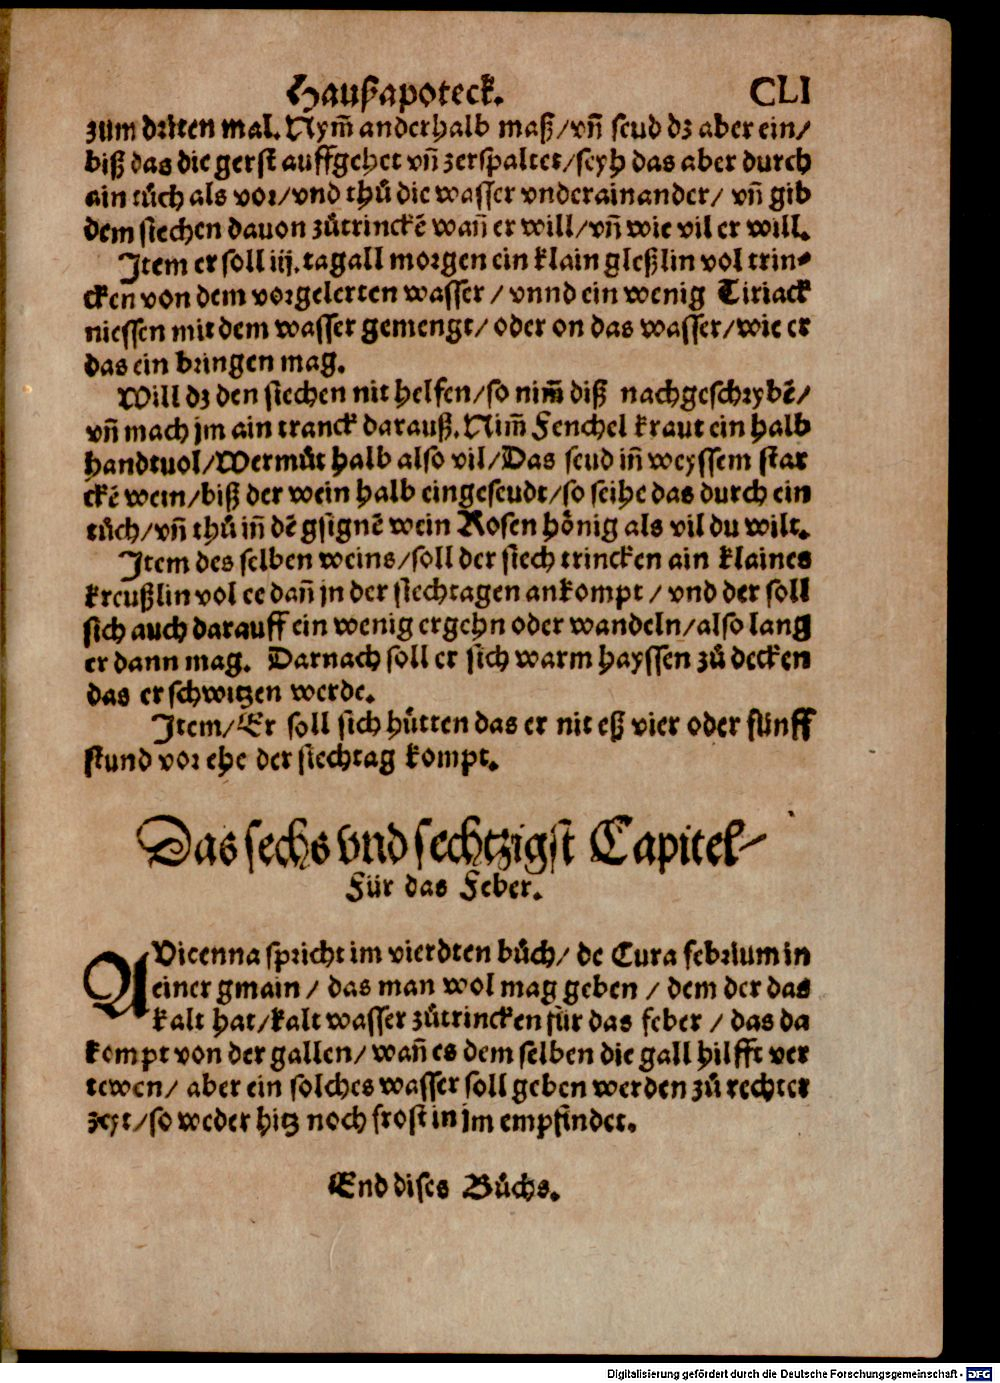 Haußapoteck. CLI
zum dritten mal. Nym̄ anderhalb maß/vn̄ seud dz aber ein/
biß das die gerst auffgehet vn̄ zerspaltet/seyh das aber durch
ain tůch als vor/vnd thů die wasser vnderainander/ vn̄ gib
dem siechen dauon zůtrinckē wan̄ er will/vn̄ wie vil er will.
Item er soll iij. tag all morgen ein klain gleßlin vol trin⸗
cken von dem vorgelerten wasser / vnnd ein wenig Tiriack
niessen mit dem wasser gemengt/ oder on das wasser/wie er
das ein bringen mag.
Will dz den siechen nit helfen/so nim̄ diß nachgeschrybē/
vn̄ mach jm ain tranck darauß. Nim̄ Fenchel kraut ein halb
handtuol/Wermůt halb also vil/Das seud in̄ weyssem star
ckē wein/biß der wein halb eingeseudt/so seihe das durch ein
tůch/vn̄ thů in̄ dē gsignē wein Rosen hönig als vil du wilt.
Item des selben weins/soll der siech trincken ain klaines
kreußlin vol ee dan̄ jn der siechtagen ankompt / vnd der soll
sich auch darauff ein wenig ergehn oder wandeln/also lang
er dann mag. Darnach soll er sich warm hayssen zů decken
das er schwitzen werde.
Item/Er soll sich hütten das er nit eß vier oder fünff
stund vor ehe der siechtag kompt.
Das sechs vnd sechtzigst Capitel
Für das Feber.
AVicenna spricht im vierdten bůch/ de Cura febrium in
einer gmain / das man wol mag geben / dem der das
kalt hat/kalt wasser zůtrincken für das feber / das da
kompt von der gallen/ wan̄ es dem selben die gall hilfft ver
tewen/ aber ein solches wasser soll geben werden zů rechter
zeyt/so weder hitz noch frost in jm empfindet.
End dises Bůchs.
Digitalisierung gefördert durch die Deutsche Forschungsgemeinschaft - DFG